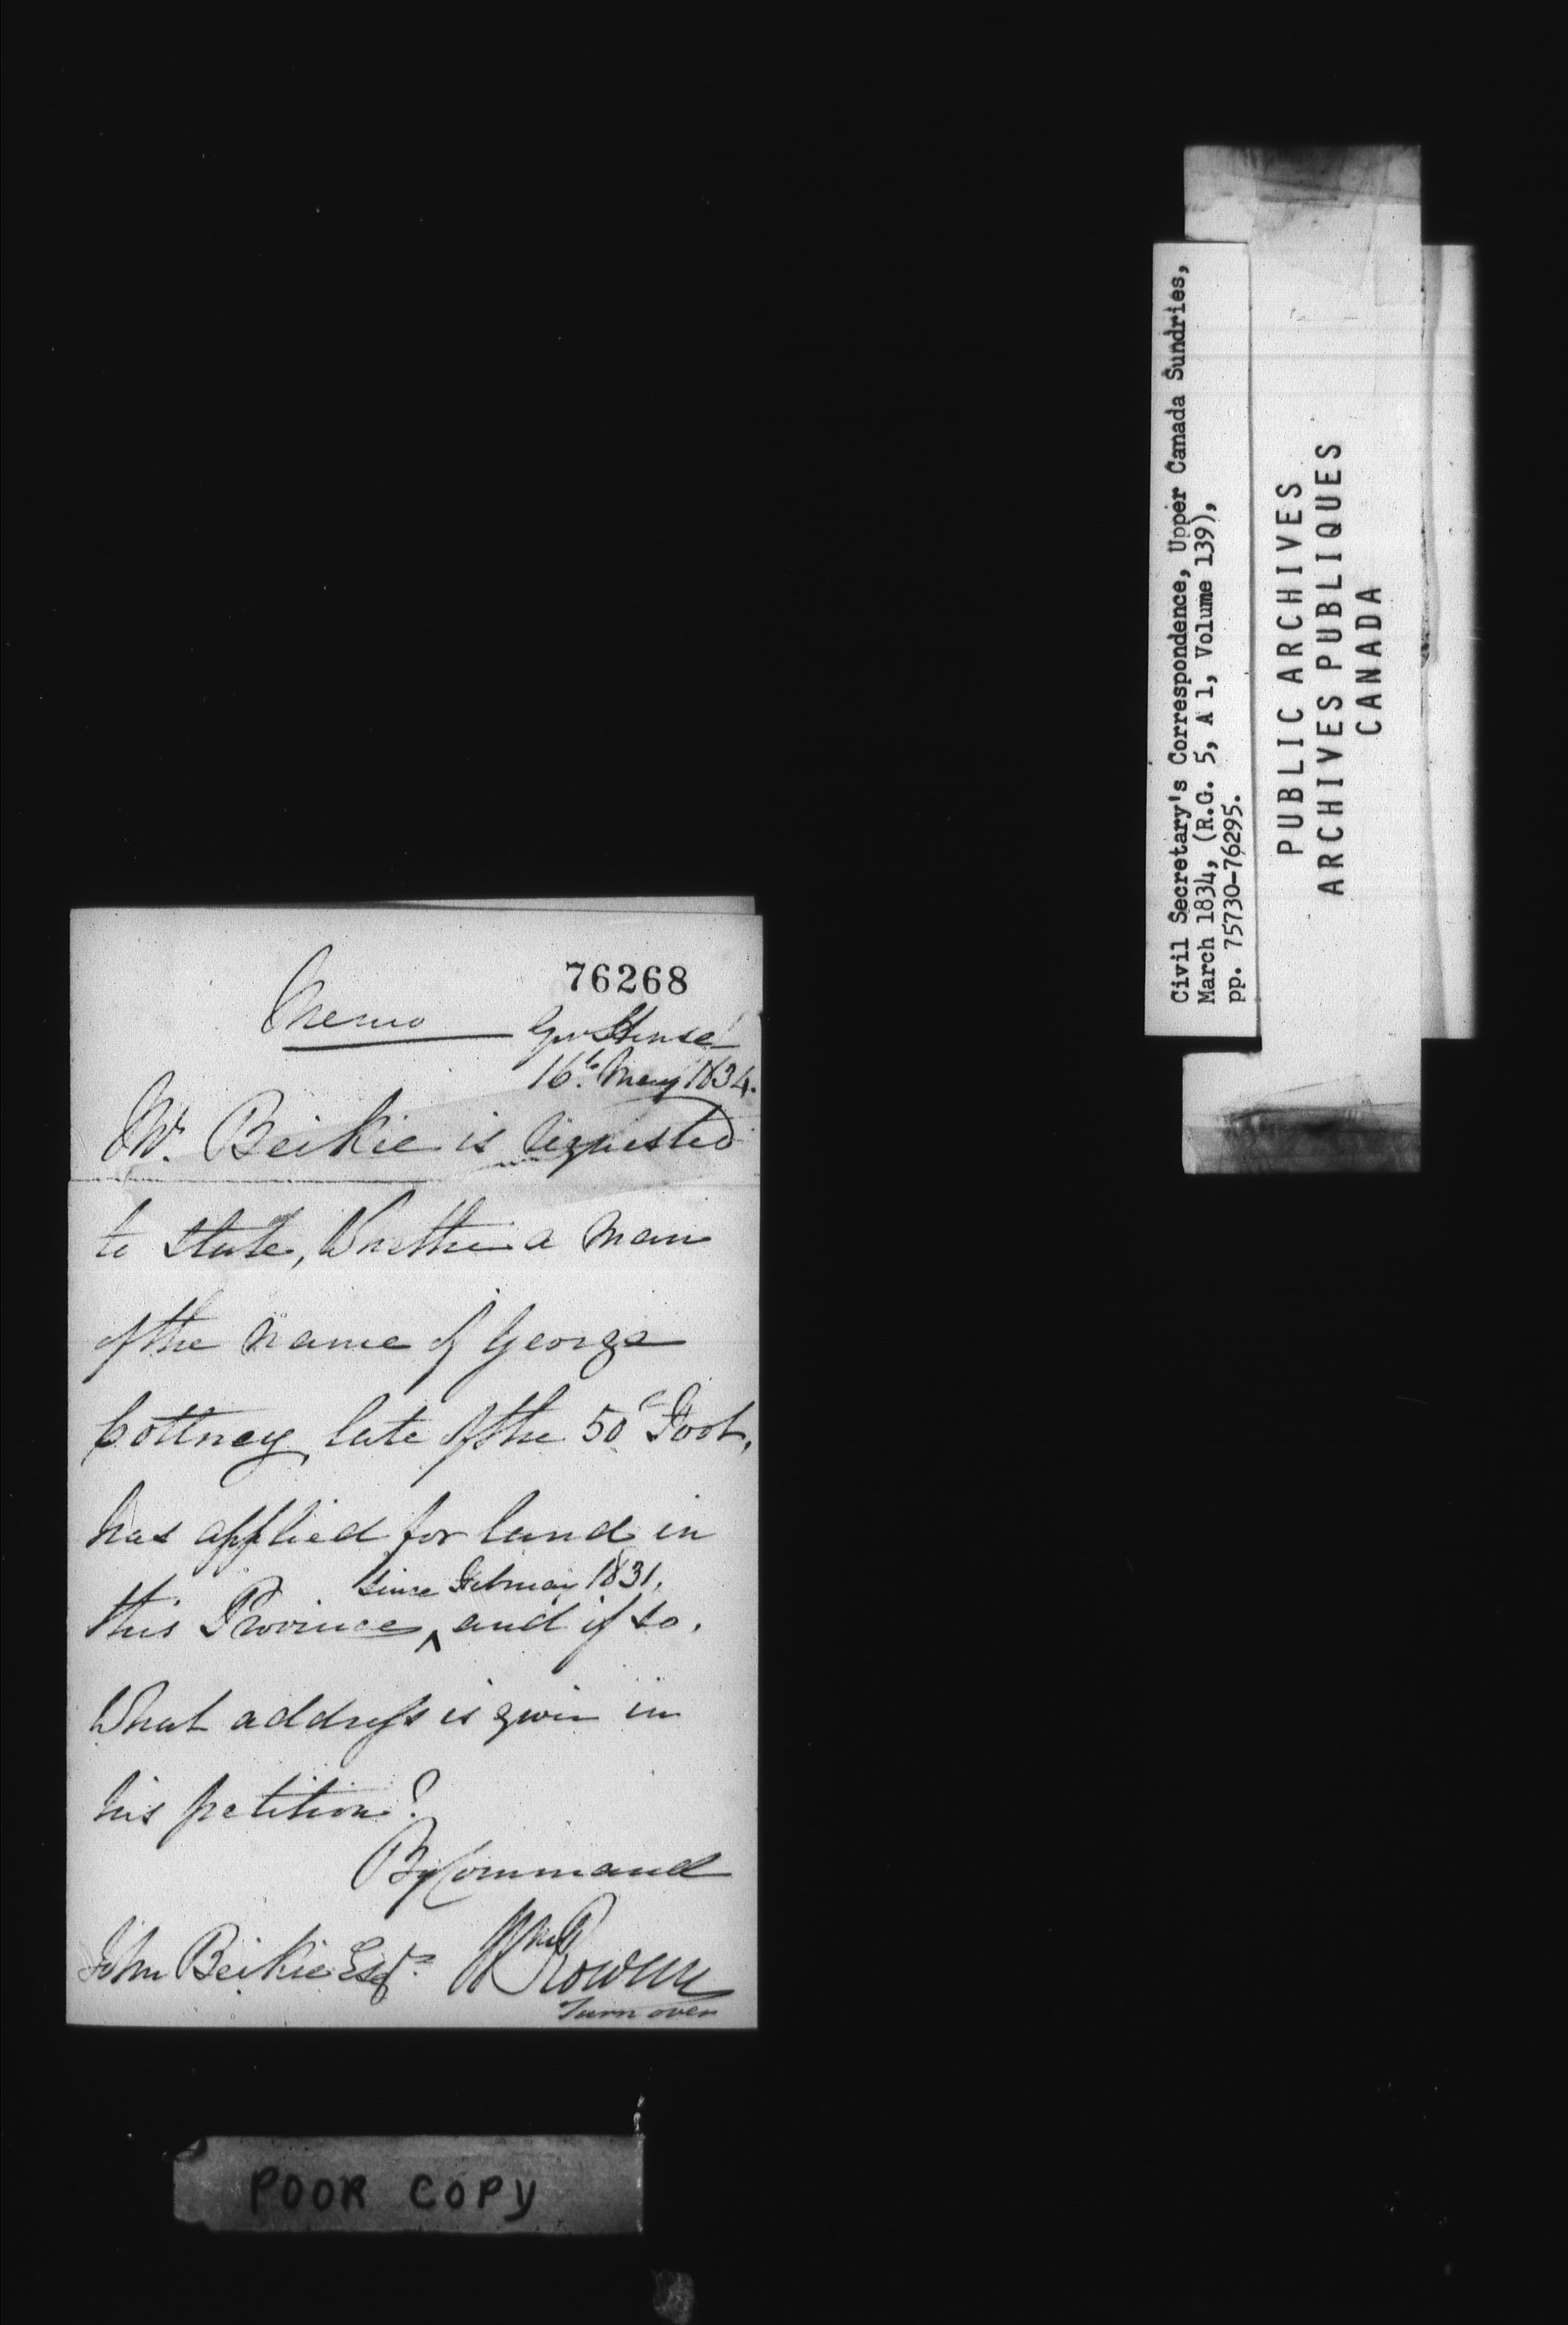 76268
Memo
Govt House
16th May 1834.
Mr. Beikie is requested
to state, Whether a Man
of the name of George
Cottney, late of the 50th Foot,
has applied for land in
since February 1831,
this Province ^ and if so,
What address is given in
his petition?
By Command
John Beikie Esqre
Wm Rowan
Turn over
POOR COPY
Civil Secretary's Correspondence, Upper Canada Sundries,
March 1834, (R.G. 5, A 1, Volume 139),
pp. 75730-76295.
PUBLIC ARCHIVES
ARCHIVES PUBLIQUES
CANADA